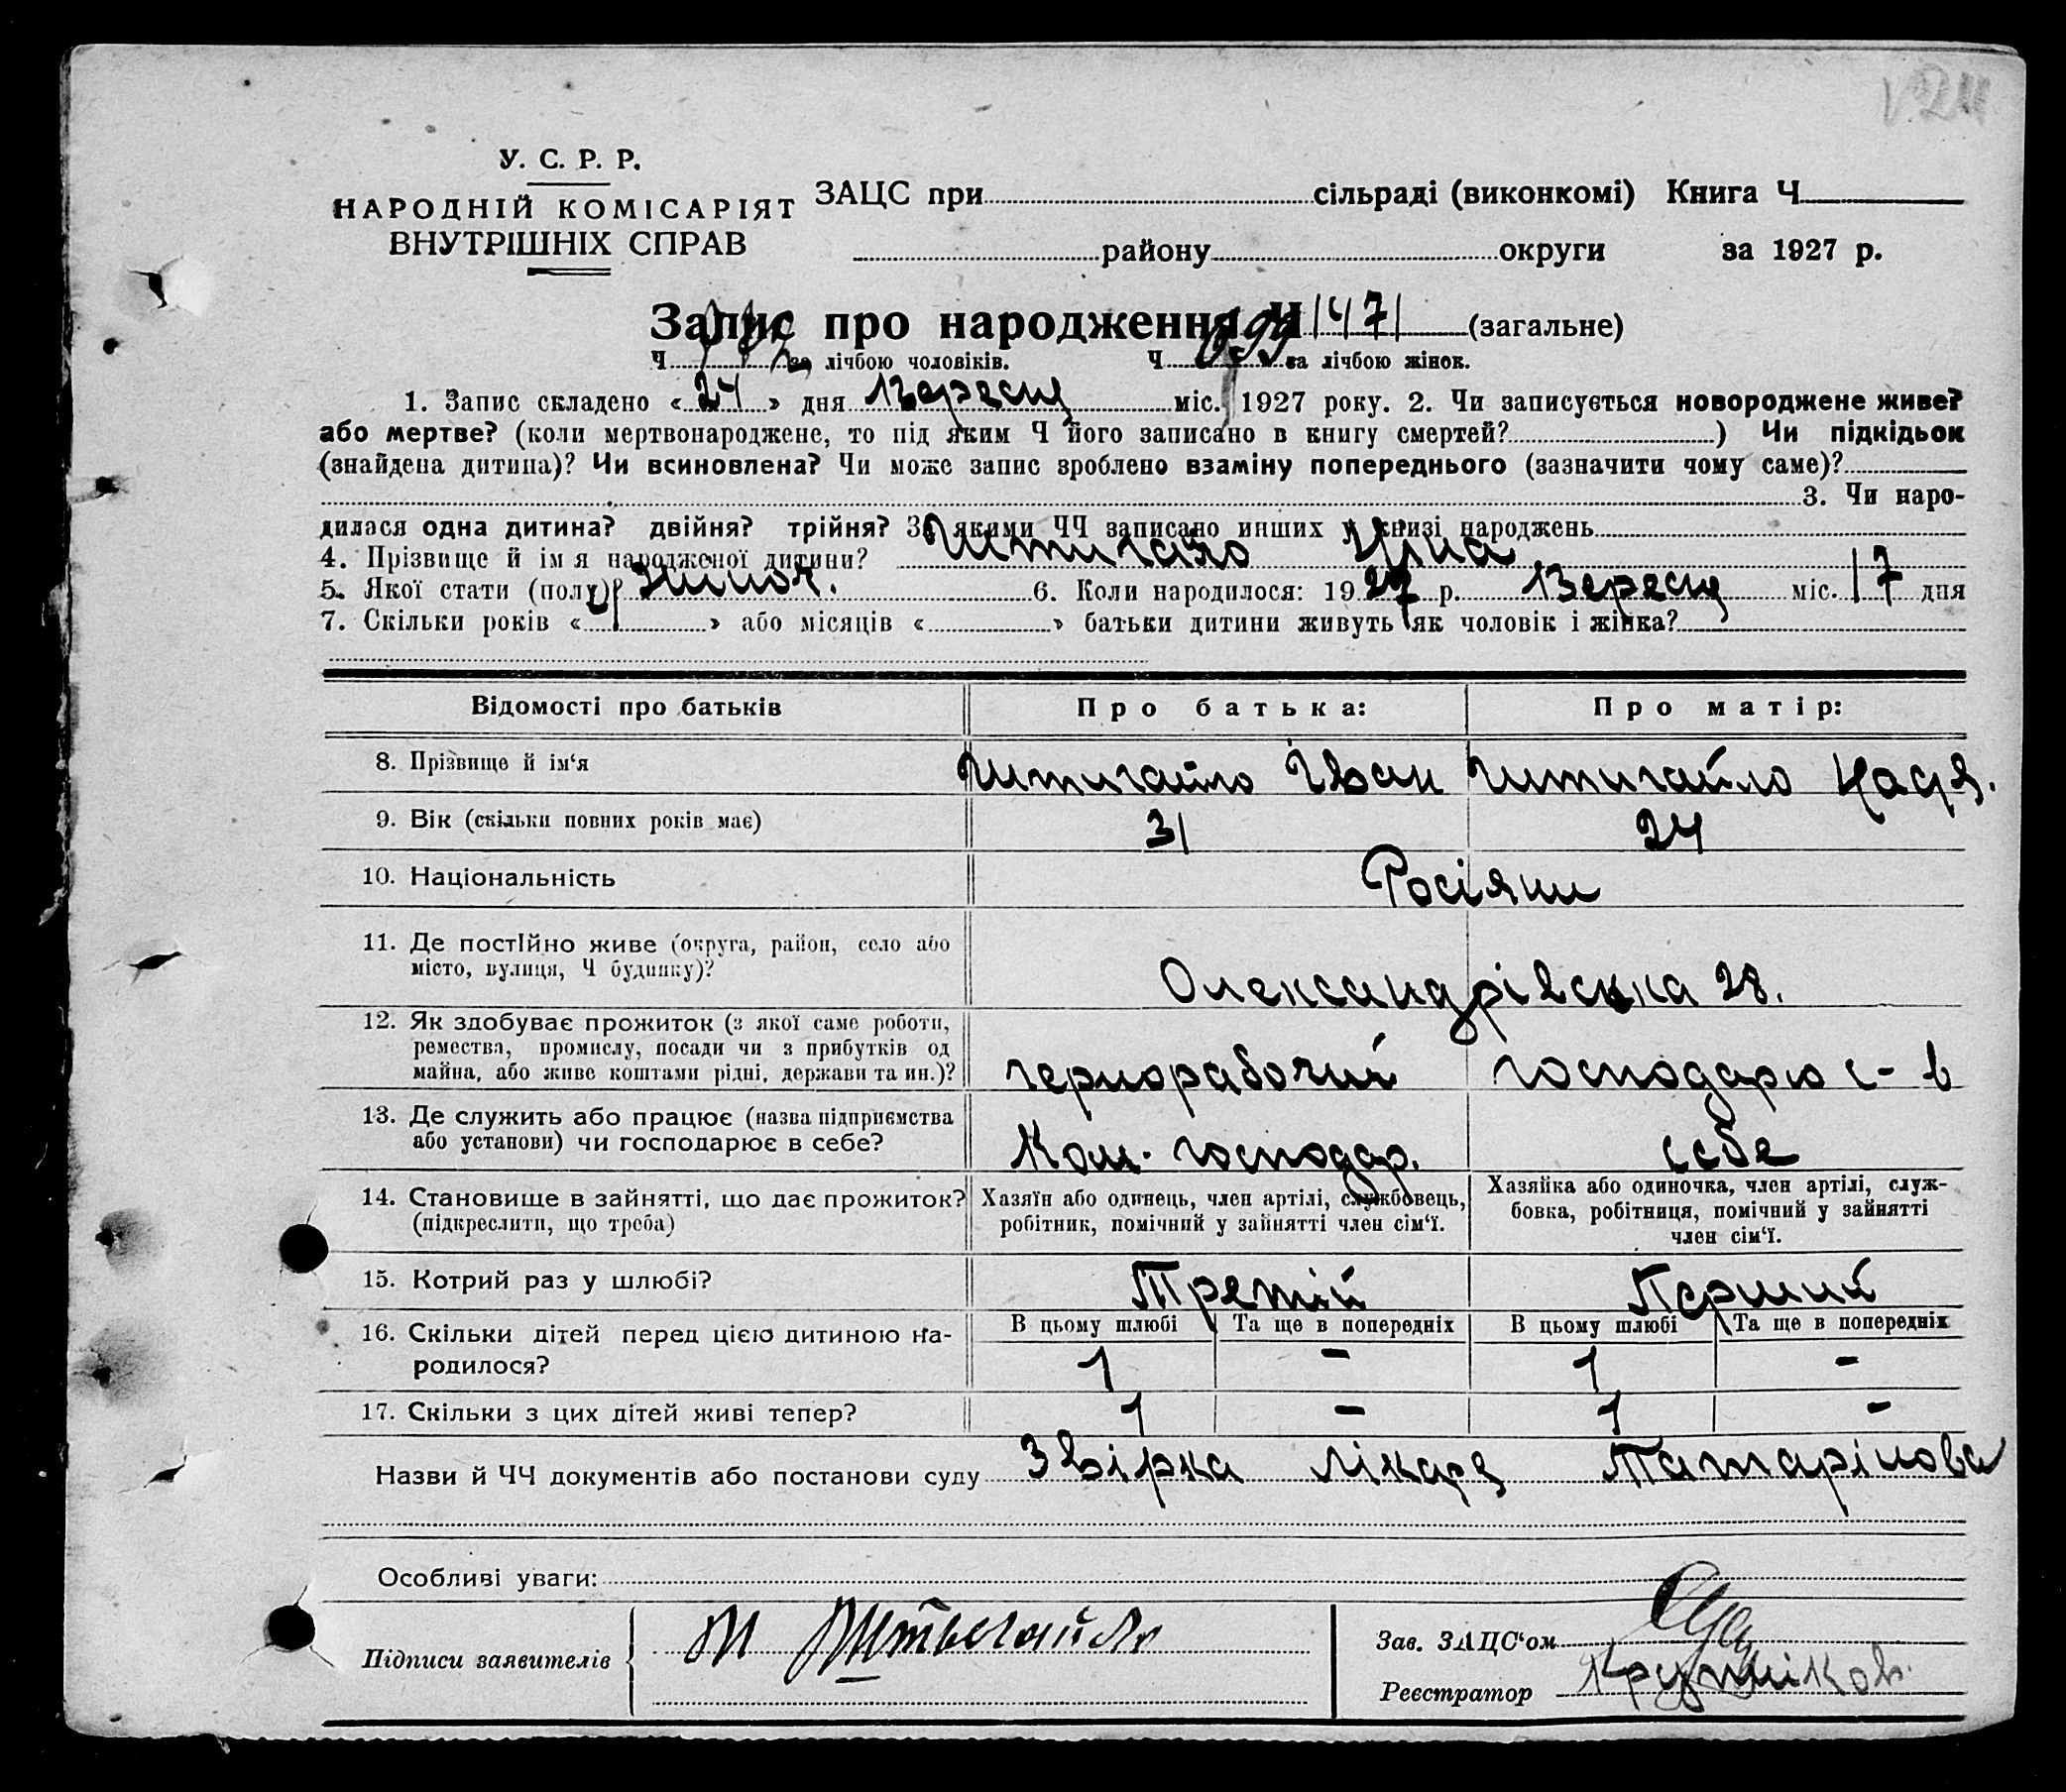 У. С. Р. Р.
НАРОДНІЙ КОМІСАРІЯТ
ВНУТРІШНІХ СПРАВ
ЗАЦС при сільраді (виконкомі) Книга Ч
району округи за 1927 р.
Запис про народження Ч 1471 (загальне)
Ч за лічбою чоловіків. Ч 699 за лічбою жінок.
1. Запис складено « 24 » дня Вересня міс. 1927 року. 2. Чи записується новороджене живе?
або мертве? (коли мертвонароджене, то під яким Ч його записано в книгу смертей? ) Чи підкідьок
(знайдена дитина)? Чи всиновлена? Чи може запис зроблено взаміну попереднього (зазначити чому саме)?
3. Чи наро-
дилася одна дитина? двійня? трійня? За якими ЧЧ записано инших у книзі народжень
4. Прізвище й ім я народженої дитини?
5. Якої стати (полу)? жиноч. 6. Коли народилося: 1927 р. Вересня міс. 17 дня
7. Скільки років « » або місяців « » батьки дитини живуть як чоловік і жінка?
Відомості про батьків Про батька: Про матір:
8. Прізвище й ім‘я Иван Надя.
9. Вік (скільки повних років має) 31 24
10. Національність Росіяни
11. Де постійно живе (округа, район, село або
місто, вулиця, Ч будинку)? Олександрівська 28.
12. Як здобуває прожиток (з якої саме роботи,
ремества, промислу, посади чи з прибутків од
майна, або живе коштами рідні, держави та ин.)? чернорабочий господарює - в
13. Де служить або працює (назва підприємства
або установи) чи господарює в себе? Ком. господар. себе
14. Становище в зайнятті, що дає прожиток?
(підкреслити, що треба)
Хазяїн або одинець, член артілі, службовець,
робітник, помічний у зайнятті член сім‘ї.
Хазяйка або одиночка, член артілі, служ-
бовка, робітниця, помічний у зайнятті
член сім‘ї.
15. Котрий раз у шлюбі? Третій Перший
16. Скільки дітей перед цією дитиною на-
родилося?
В цьому шлюбі Та ще в попередніх В цьому шлюбі Та ще в попередніх
1 - 1 -
17. Скільки з цих дітей живі тепер? 1 - 1 -
Назви й ЧЧ документів або постанови суду Звірка лікаря Татарінова
Особливі уваги:
Підписи заявителів
Зав. ЗАЦС‘ом
Реєстратор